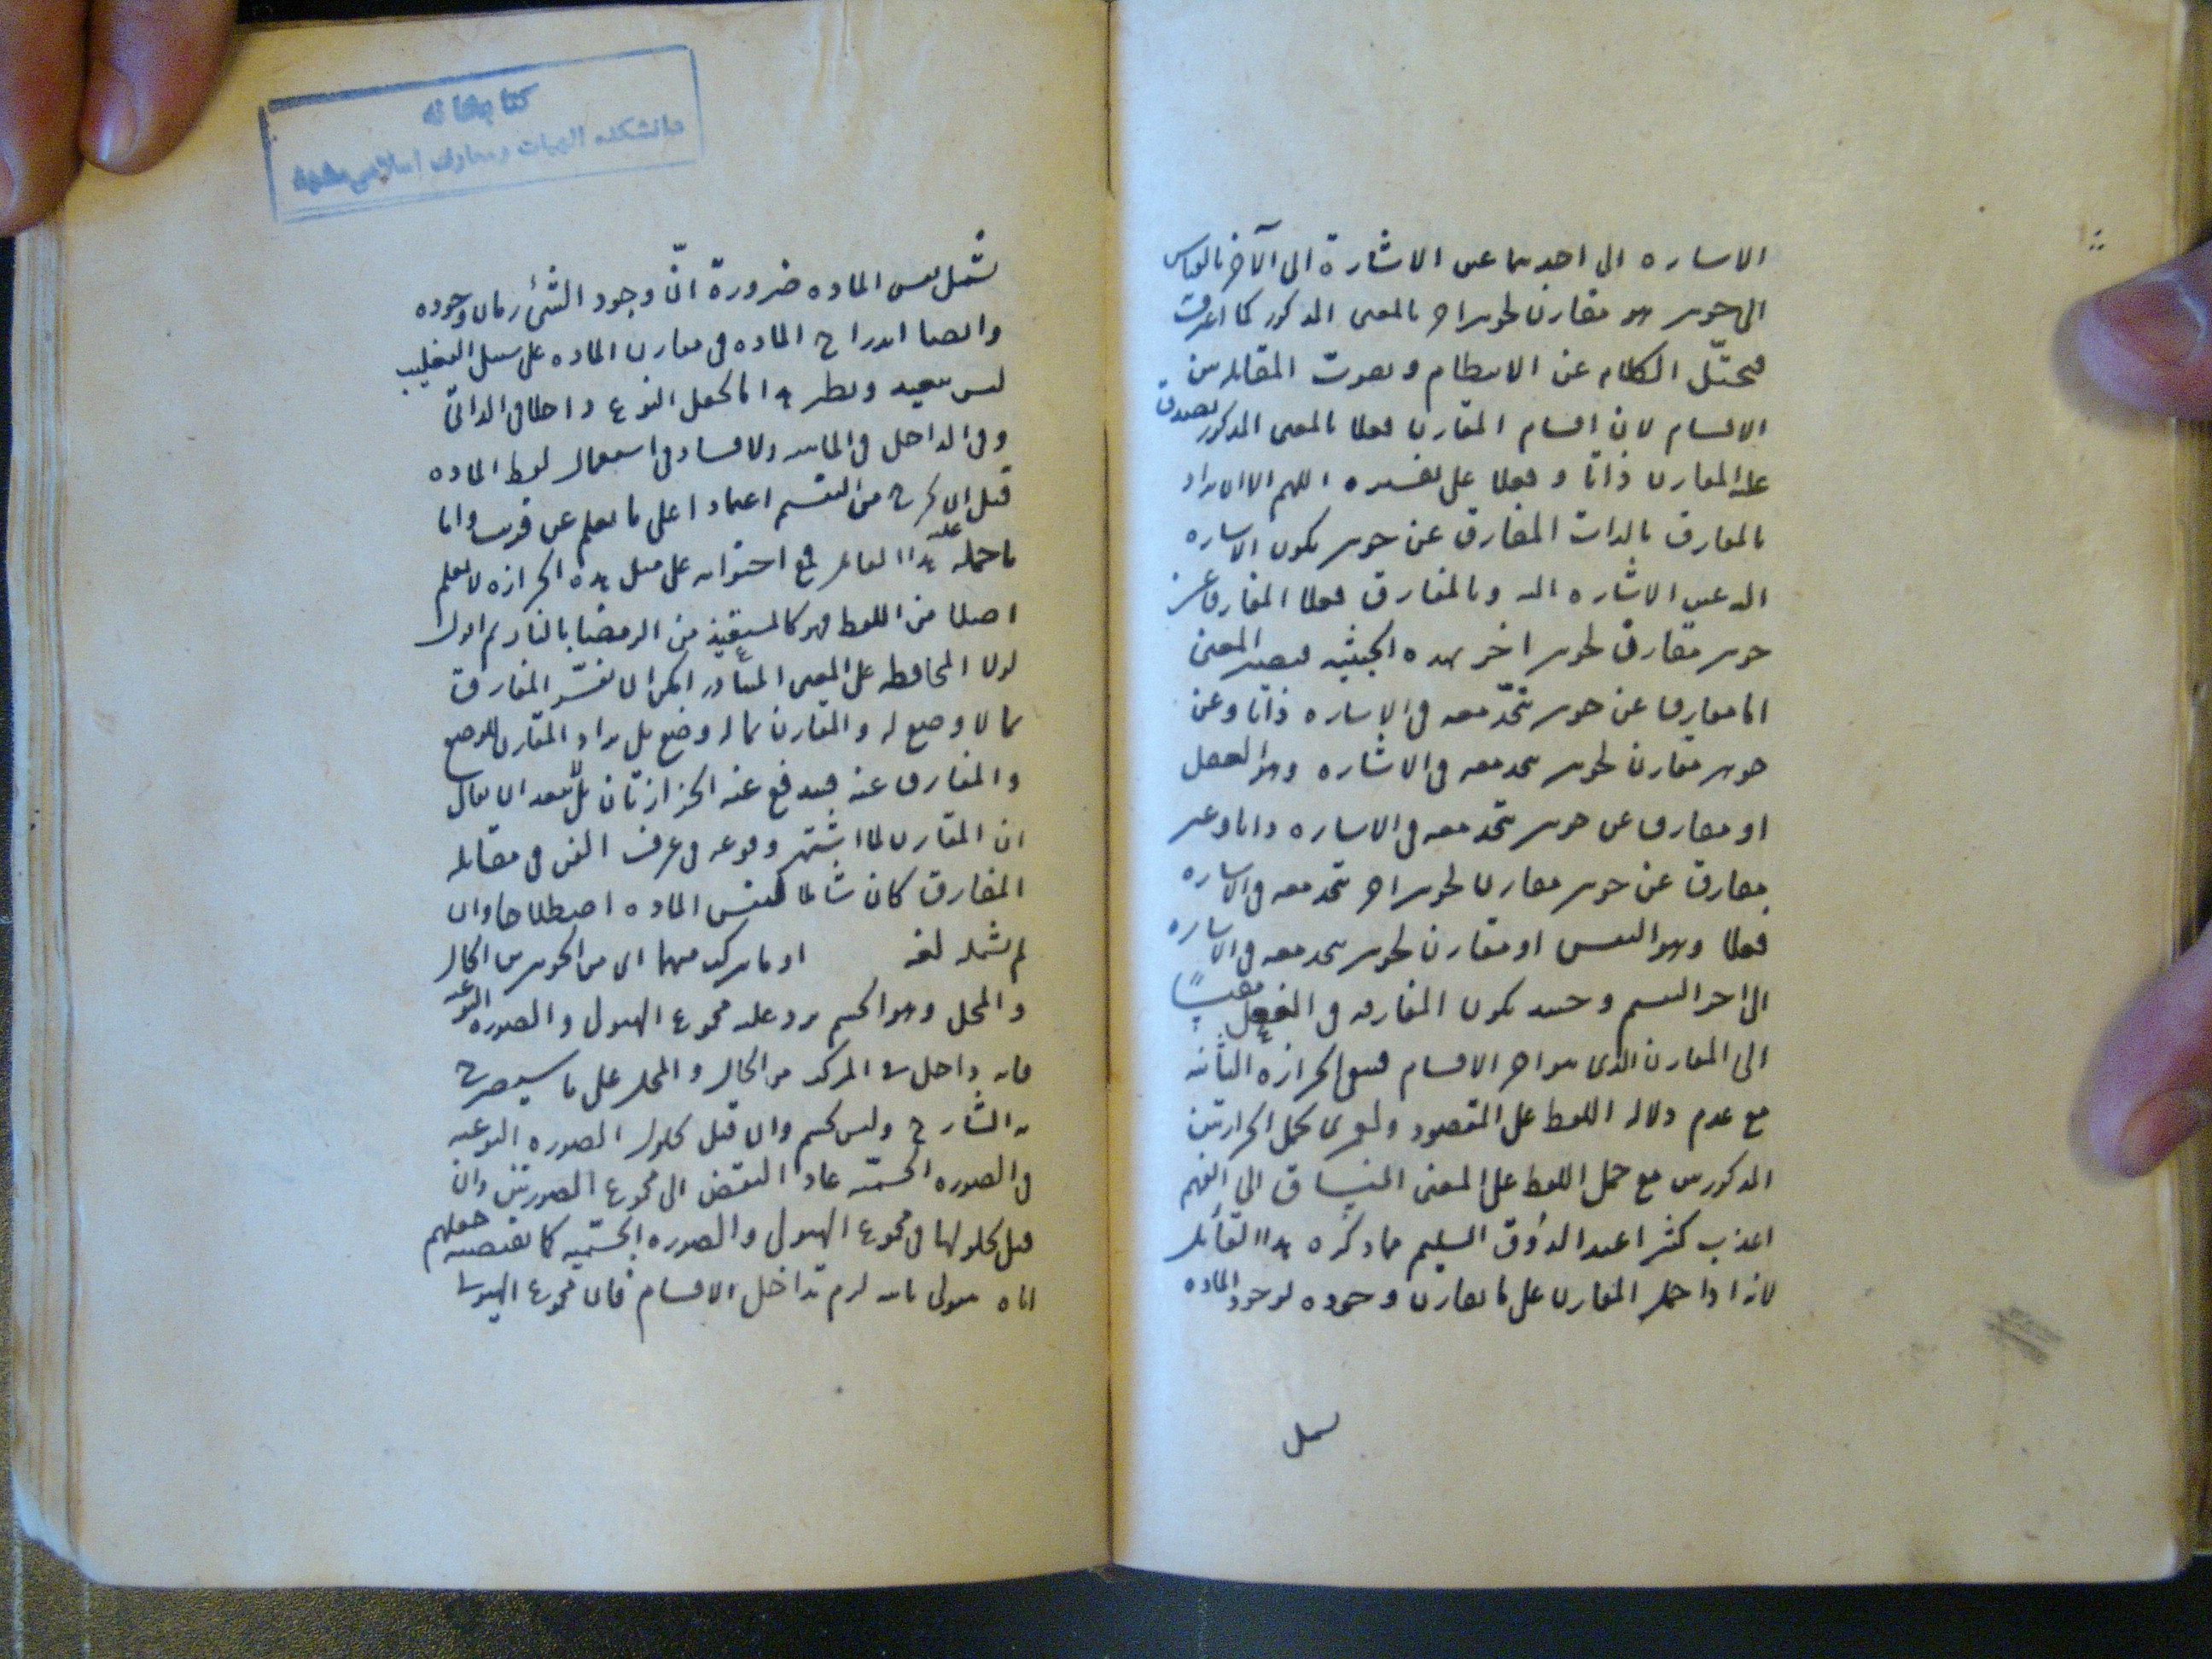 الاساره الى احدهما عين الاشارة الى الآخر بالقياس
الى جوهر هو مقارن لجوهر اخر بالمعنى المذكور كما اعرفت
فيختل الكلام عن الانتظام ويفوت التقابل بين
الاقسام لان اقسام المقارن فعلا بالمعنى المذكور يصدق
على المفارق ذاتا وفعلا على تفسيره اللهم الا ان يراد
بالمفارق بالذات المفارق عن جوهر يكون الاشاره
اليه عين الاشاره اليه وبالمفارق فعلا المفارق عن
جوهر مقارن لجوهر اخر بهذه الحيثيه فيصير المعنى
اما مفارق عن جوهر يتحد معه فى الاشاره ذاتا وعن
جوهر مقارن لجوهر يتحد معه فى الاشاره وهو العقل
او مفارق عن جوهر يتحد معه فى الاشاره ذاتا وغير
مفارق عن جوهر مقارن لجوهر اخر يتحد معه فى الاشاره
فعلا وهو النفس او مقارن لجوهر يتحد معه فى الاشاره
الى اخر التقسيم وحينئذ يكون المفارقه فى الفعل
الى المقارن الذى هو اخر الاقسام فبقى الحزازه الثانيه
مع عدم دلاله اللفظ على المقصود ولعمرى تحمل الحزازتين
المذكورتين مع حمل اللفظ على المعنى المنساق الى الفهم
اعذب كثيرا عند الذوق السليم مما ذكره هذا القائل
لانه اذا حمل المقارن على ما يقارن وجوده لوجود الماده
يشمل
كتابخانه
دانشكده الهيات و معارف اسلامى مشهد
يشمل نفس الماده ضرورة انّ وجود الشئ زمان وجوده
وايضا اندراج الماده فى مقارن الماده على سبيل التغليب
ليس ببعيد ونظير هذا ما يجعل النوع داخلا فى الذاتى
وفى الداخل فى الماهيه ولا فساد فى استعمال لفظ الماده
قبل ان يخرج من التقسيم اعتمادا على ما يعلم عن قريب واما
ما حمله عليه هذا القائل فمع احتوائه على مثل هذه الحزازه لا يعلم
اصلا من اللفظ فهو كالمستعيذ من الرمضا بالنار ثم اقول
لولا المحافظه على المعنى المتبادر امكن ان يفسّر المفارق
بما لا وضع له والمقارن بما له وضع بل يراد المقارن للوضع
والمفارق عنه فيندفع عنه الحزازتان بل نقول ان يقال
ان المقارن لما اشتهر وقوعه فى عرف الفن فى مقابله
المفارق كان شاملا لنفس الماده اصطلاحا وان
لم يشمله لغه او ما يتركب منهما اى من الجوهرين الحال
والمحل وهو الجسم يرد عليه مجموع الهيولى والصوره النوعيه
فانه داخل فى المركب من الحال والمحل على ما سيصرح
به الشارح وليس بجسم وان قيل بحلول الصوره النوعيه
فى الصوره الجسميّه عاد النقض الى مجموع الصورتين وان
قيل بحلولها فى مجموع الهيولى والصوره الجسميّه كما يقتضيه جعلهم
اياه هيولى ثانيه لزم تداخل الاقسام فان مجموع الهيولى